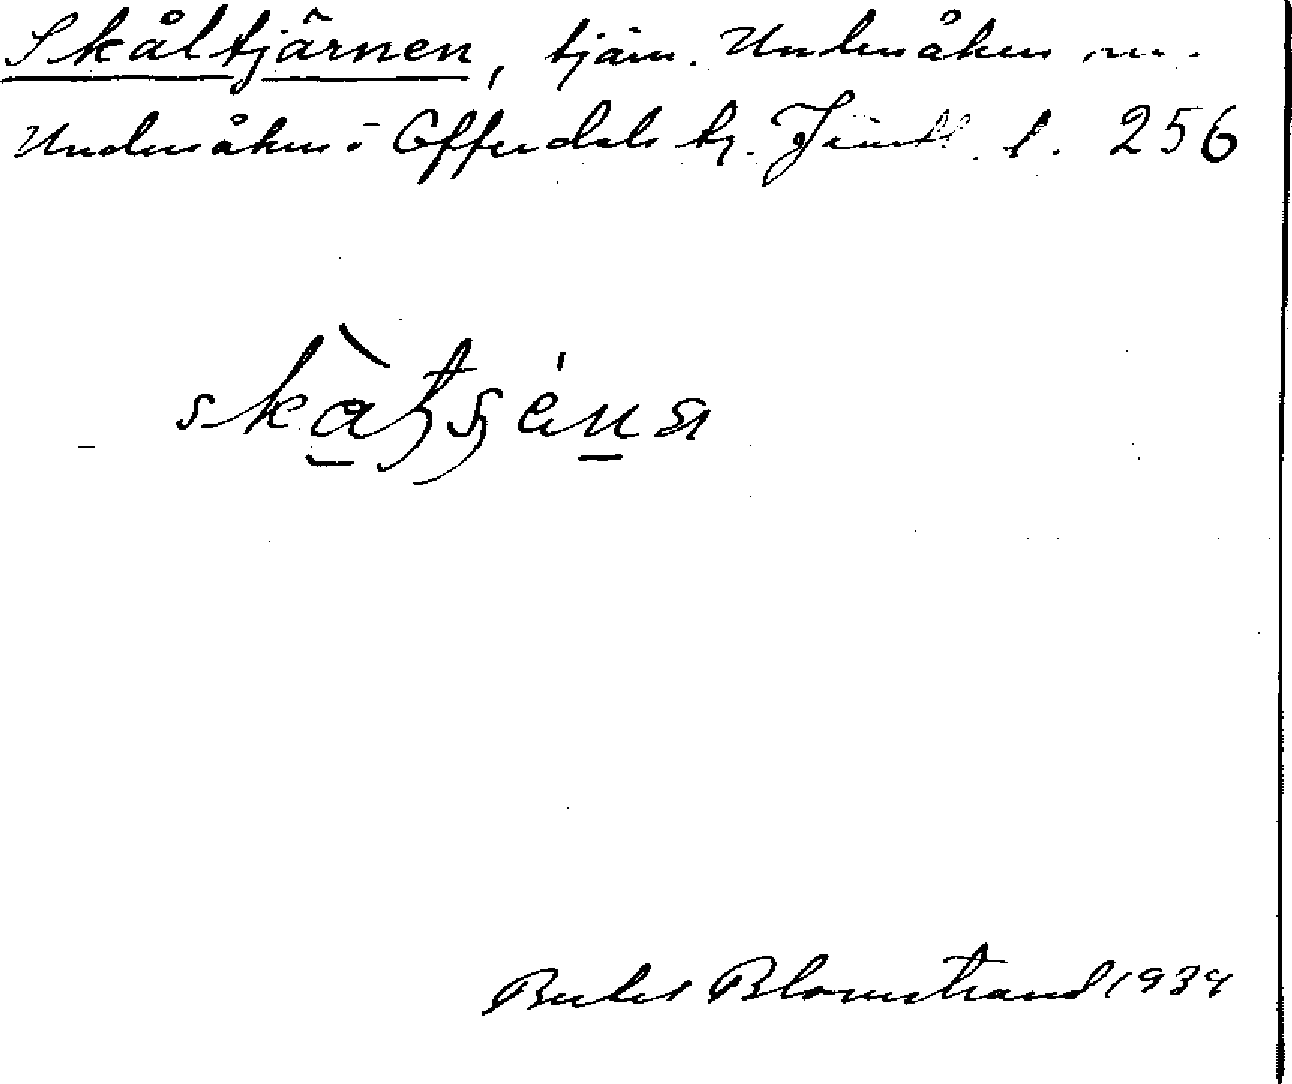 Skåltjärnen, tjärn. Undersåkers sn.
Undersåkers o Offerdals tg. Jämtl. l. 256
Bertil Blomstrand 1934